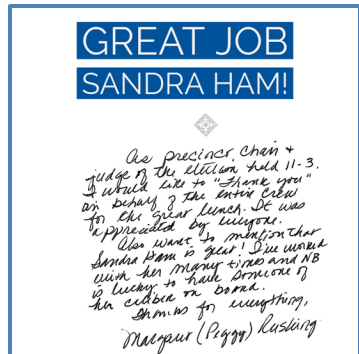 GREAT JOB
SANDRA HAM!
As precinct chair +
judge of the election held 11-3.
I would like to "Thank you"
on behalf of the entire crew
for the great lunch. It was
appreciated by everyone.
Also want to mention that
Sandra Ham is great! I've worked
with her many times and NB
is lucky to have someone of
her caliber on board.
Thanks for everything,
Margaret (Peggy) Rushing